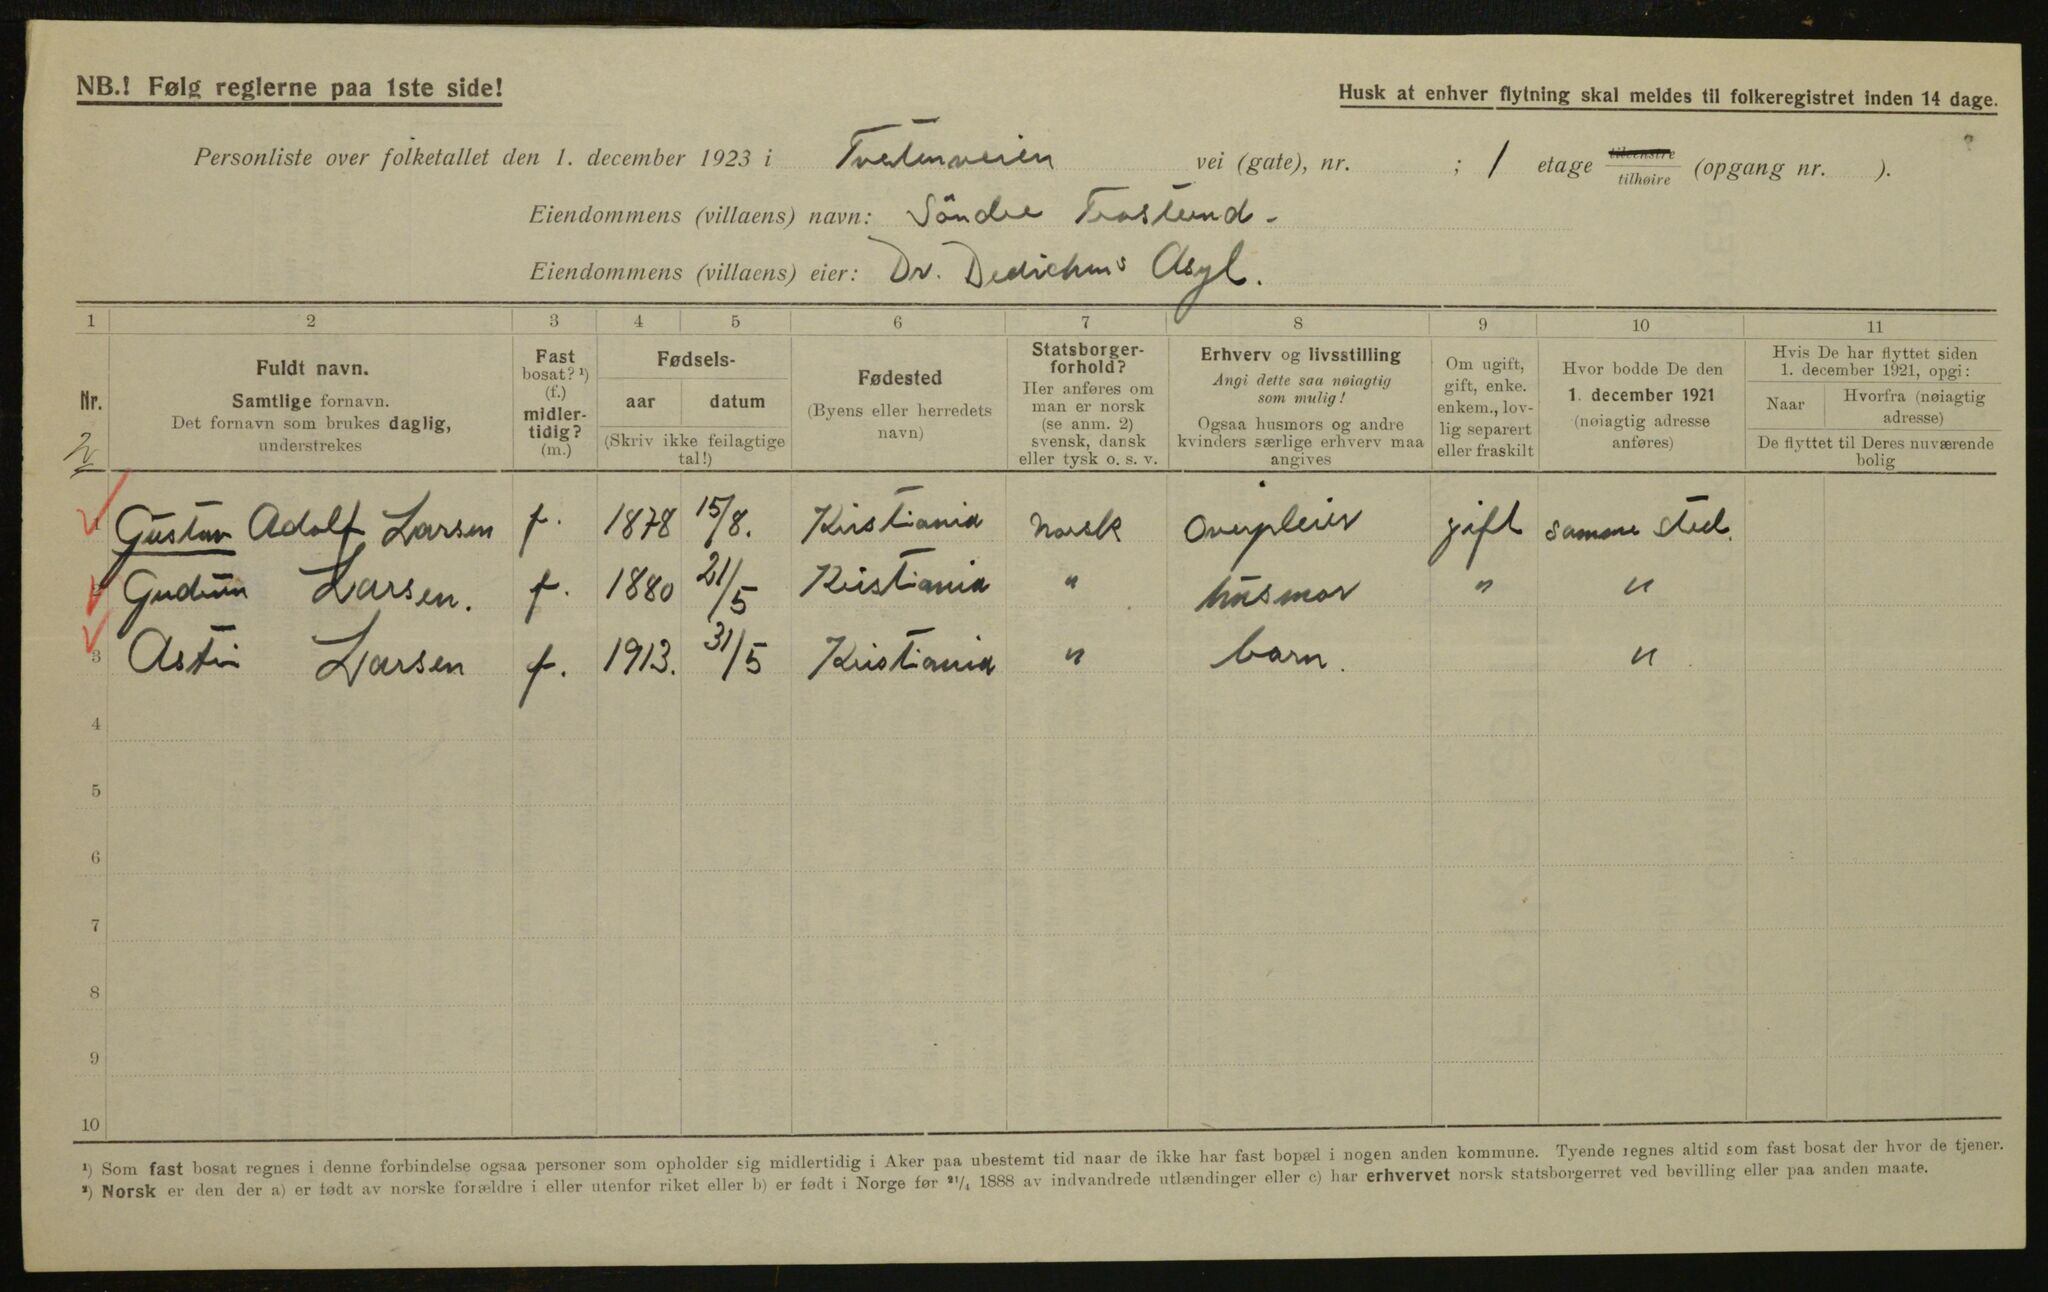 NB.! Følg reglerne paa 1ste side!
Husk at enhver flytning skal meldes til folkeregistret inden 14 dage.
Personliste over folketallet den 1. december 1923 i Tvetenveien vei (gate), nr. ; 1 etage tilvenstre/tilhøire (opgang nr. ).
Eiendommens (villaens) navn: Söndre Trosterud -
Eiendommens (villaens) eier: Dr. Dedichens Asyl.
1 2 3 4 5 6 7 8 9 10 11
Nr.
Fuldt navn.
Samtlige fornavn.
Det fornavn som brukes daglig,
understrekes
Fast
bosat? ¹)
(f.)
midler-
tidig?
(m.)
Fødsels-
aar datum
(Skriv ikke feilagtige
tal!)
Fødested
(Byens eller herredets
navn)
Statsborger-
forhold?
Her anføres om
man er norsk
(se anm. 2)
svensk, dansk
eller tysk o. s. v.
Erhverv og livsstilling
Angi dette saa nøiagtig
som mulig!
Ogsaa husmors og andre
kvinders særlige erhverv maa
angives
Om ugift,
gift, enke.
enkem., lov-
lig separert
eller fraskilt
Hvor bodde De den
1. december 1921
(nøiagtig adresse
anføres)
Hvis De har flyttet siden
1. december 1921, opgi:
Naar
Hvorfra (nøiagtig
adresse)
De flyttet til Deres nuværende
bolig
1 Gustav Adolf Larsen f. 1878 15/8. Kristiania Norsk Overpleier gift samme sted.
2 Gudrun Larsen. f. 1880 21/5 Kristiania " husmor " "
3 Astri Larsen f. 1913. 31/5 Kristiania " barn. "
4
5
6
7
8
9
10
¹) Som fast bosat regnes i denne forbindelse ogsaa personer som opholder sig midlertidig i Aker paa ubestemt tid naar de ikke har fast bopæl i nogen anden kommune. Tyende regnes altid som fast bosat der hvor de tjener.
²) Norsk er den der a) er født av norske forældre i eller utenfor riket eller b) er født i Norge før ²¹/₄ 1888 av indvandrede utlændinger eller c) har erhvervet norsk statsborgerret ved bevilling eller paa anden maate.